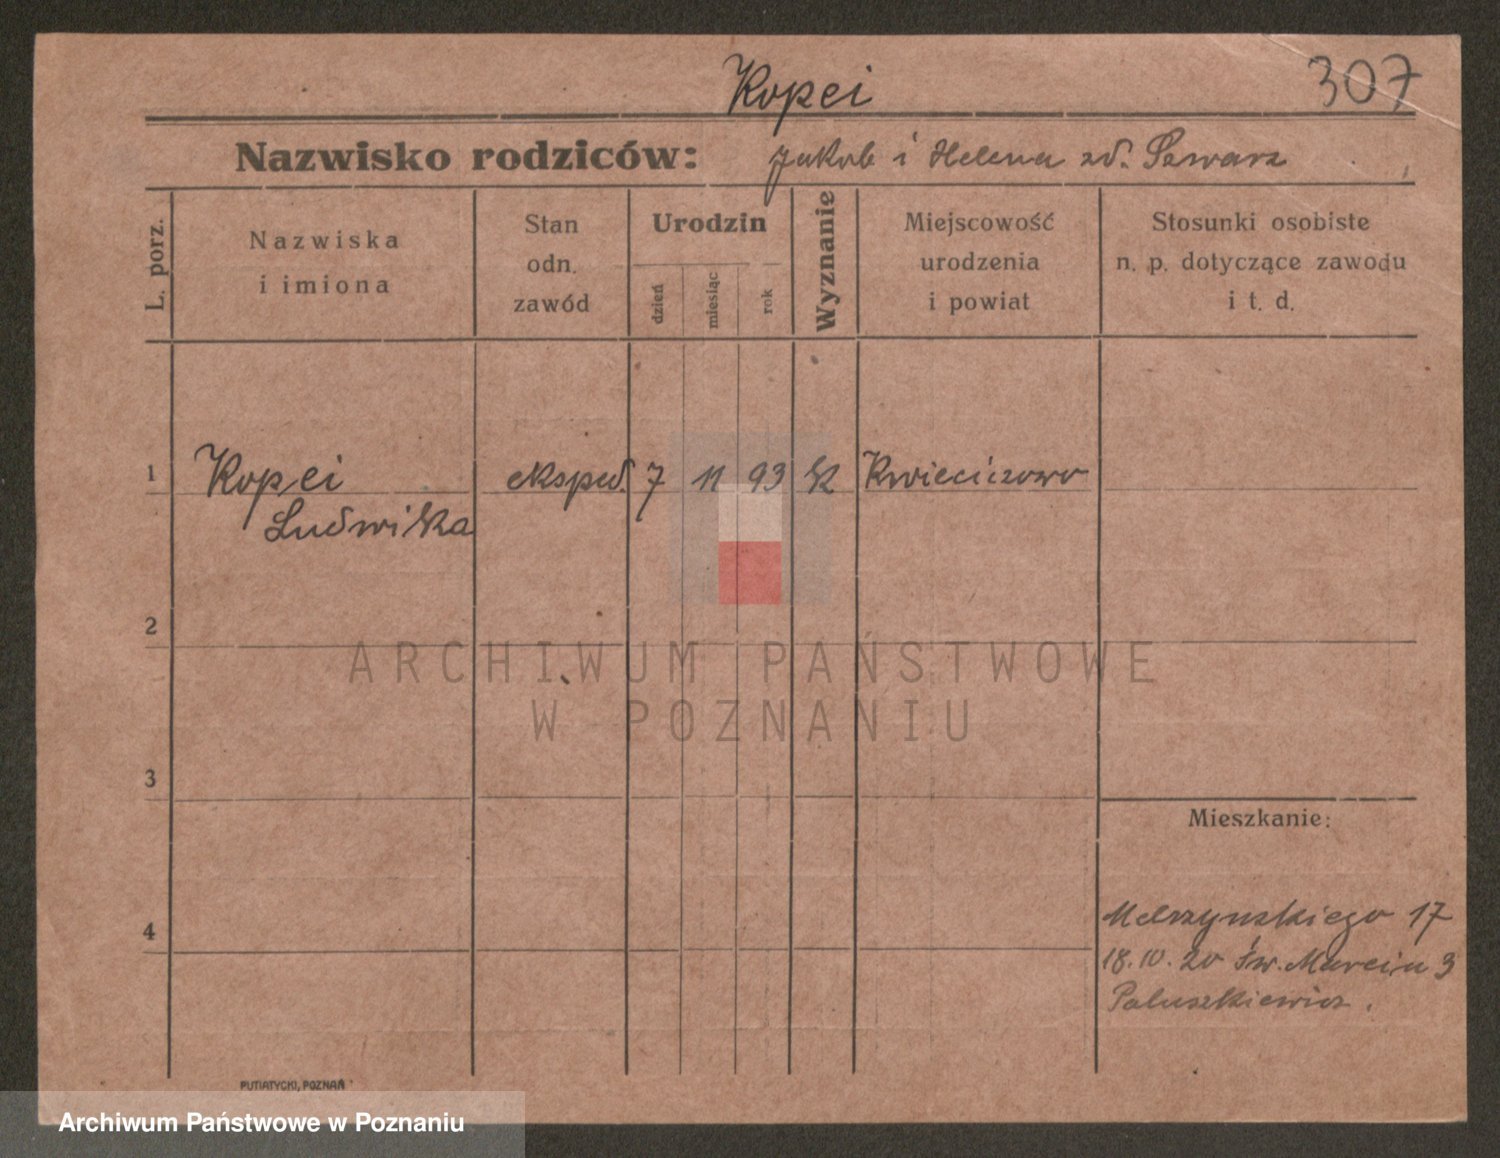 Kopei
307
Nazwisko rodziców: Jakob i Helena zd. Szwarz
L. porz.
Nazwiska
i imiona
Stan
odn.
zawód
Urodzin
dzień
miesiąc
rok
Wyznanie
Miejscowość
urodzenia
i powiat
Stosunki osobiste
n. p. dotyczące zawodu
i t. d.
1 Kopei eksped. 7 11 93 k Kwieciszowo
Ludwika
2
ARCHIWUM PAŃSTWOWE
W POZNANIU
3
Mieszkanie:
4
Mielżyńskiego 17
18.10.20 Św. Marcin 3
Paluszkiewicz.
PUTIATYCKI, POZNAŃ
Archiwum Państwowe w Poznaniu